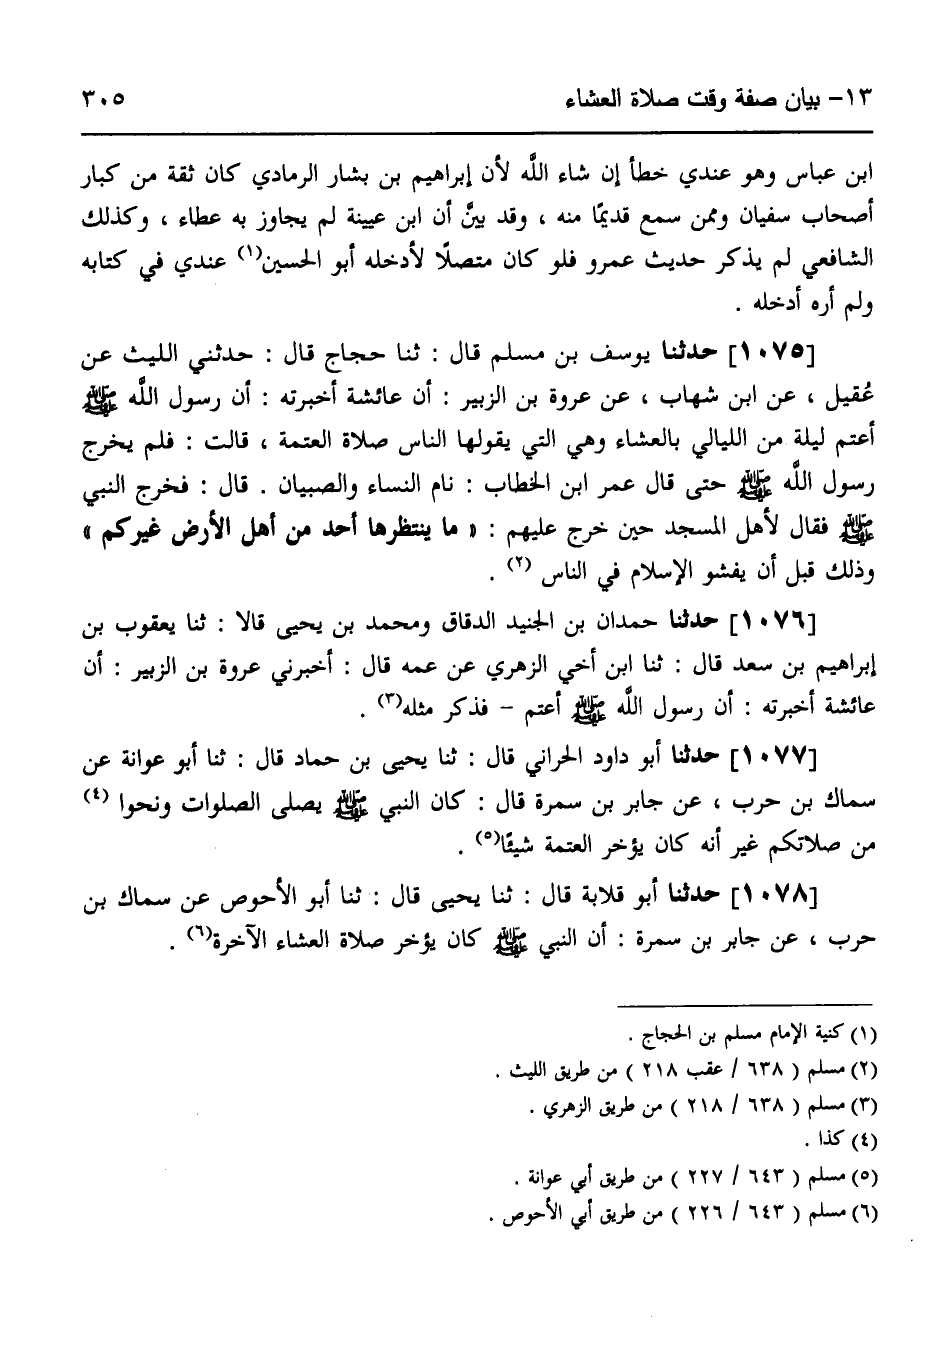 ١٣- بيان صفة وقت صلاة العشاء ٣٠٥
ابن عباس وهو عندي خطأ إن شاء اللَّه لأن إبراهيم بن بشار الرمادي كان ثقة من كبار
أصحاب سفيان وممن سمع قديمًا منه ، وقد بينَّ أن ابن عيينة لم يجاوز به عطاء ، وكذلك
الشافعي لم يذكر حديث عمرو فلو كان متصلًا لأدخله أبو الحسين(١) عندي في كتابه
ولم أره أدخله .
[١٠٧٥] حدثنا يوسف بن مسلم قال : ثنا حجاج قال : حدثني الليث عن
عُقيل ، عن ابن شهاب ، عن عروة بن الزبير : أن عائشة أخبرته : أن رسول اللَّه ﷺ
أعتم ليلة من الليالي بالعشاء وهي التي يقولها الناس صلاة العتمة ، قالت : فلم يخرج
رسول اللَّه ﷺ حتى قال عمر ابن الخطاب : نام النساء والصبيان . قال : فخرج النبي
ﷺ فقال لأهل المسجد حين خرج عليهم : « ما ينتظرها أحد من أهل الأرض غيركم »
وذلك قبل أن يفشو الإسلام في الناس (٢) .
[١٠٧٦] حدثنا حمدان بن الجنيد الدقاق ومحمد بن يحيى قالا : ثنا يعقوب بن
إبراهيم بن سعد قال : ثنا ابن أخي الزهري عن عمه قال : أخبرني عروة بن الزبير : أن
عائشة أخبرته : أن رسول اللَّه ﷺ أعتم – فذكر مثله(٣) .
[١٠٧٧] حدثنا أبو داود الحراني قال : ثنا يحيى بن حماد قال : ثنا أبو عوانة عن
سماك بن حرب ، عن جابر بن سمرة قال : كان النبي ﷺ يصلى الصلوات ونحوا (٤)
من صلاتكم غير أنه كان يؤخر العتمة شيئًا(٥) .
[١٠٧٨] حدثنا أبو قلابة قال : ثنا يحيى قال : ثنا أبو الأحوص عن سماك بن
حرب ، عن جابر بن سمرة : أن النبي ﷺ كان يؤخر صلاة العشاء الآخرة(٦) .
(١) كنية الإمام مسلم بن الحجاج .
(٢) مسلم ( ٦٣٨ / عقب ٢١٨ ) من طريق الليث .
(٣) مسلم ( ٦٣٨ / ٢١٨ ) من طريق الزهري .
(٤) كذا .
(٥) مسلم ( ٦٤٣ / ٢٢٧ ) من طريق أبي عوانة .
(٦) مسلم ( ٦٤٣ / ٢٢٦ ) من طريق أبي الأحوص .